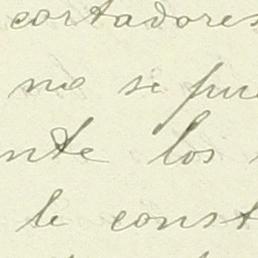 cortadores
no se pue
nte los
le const